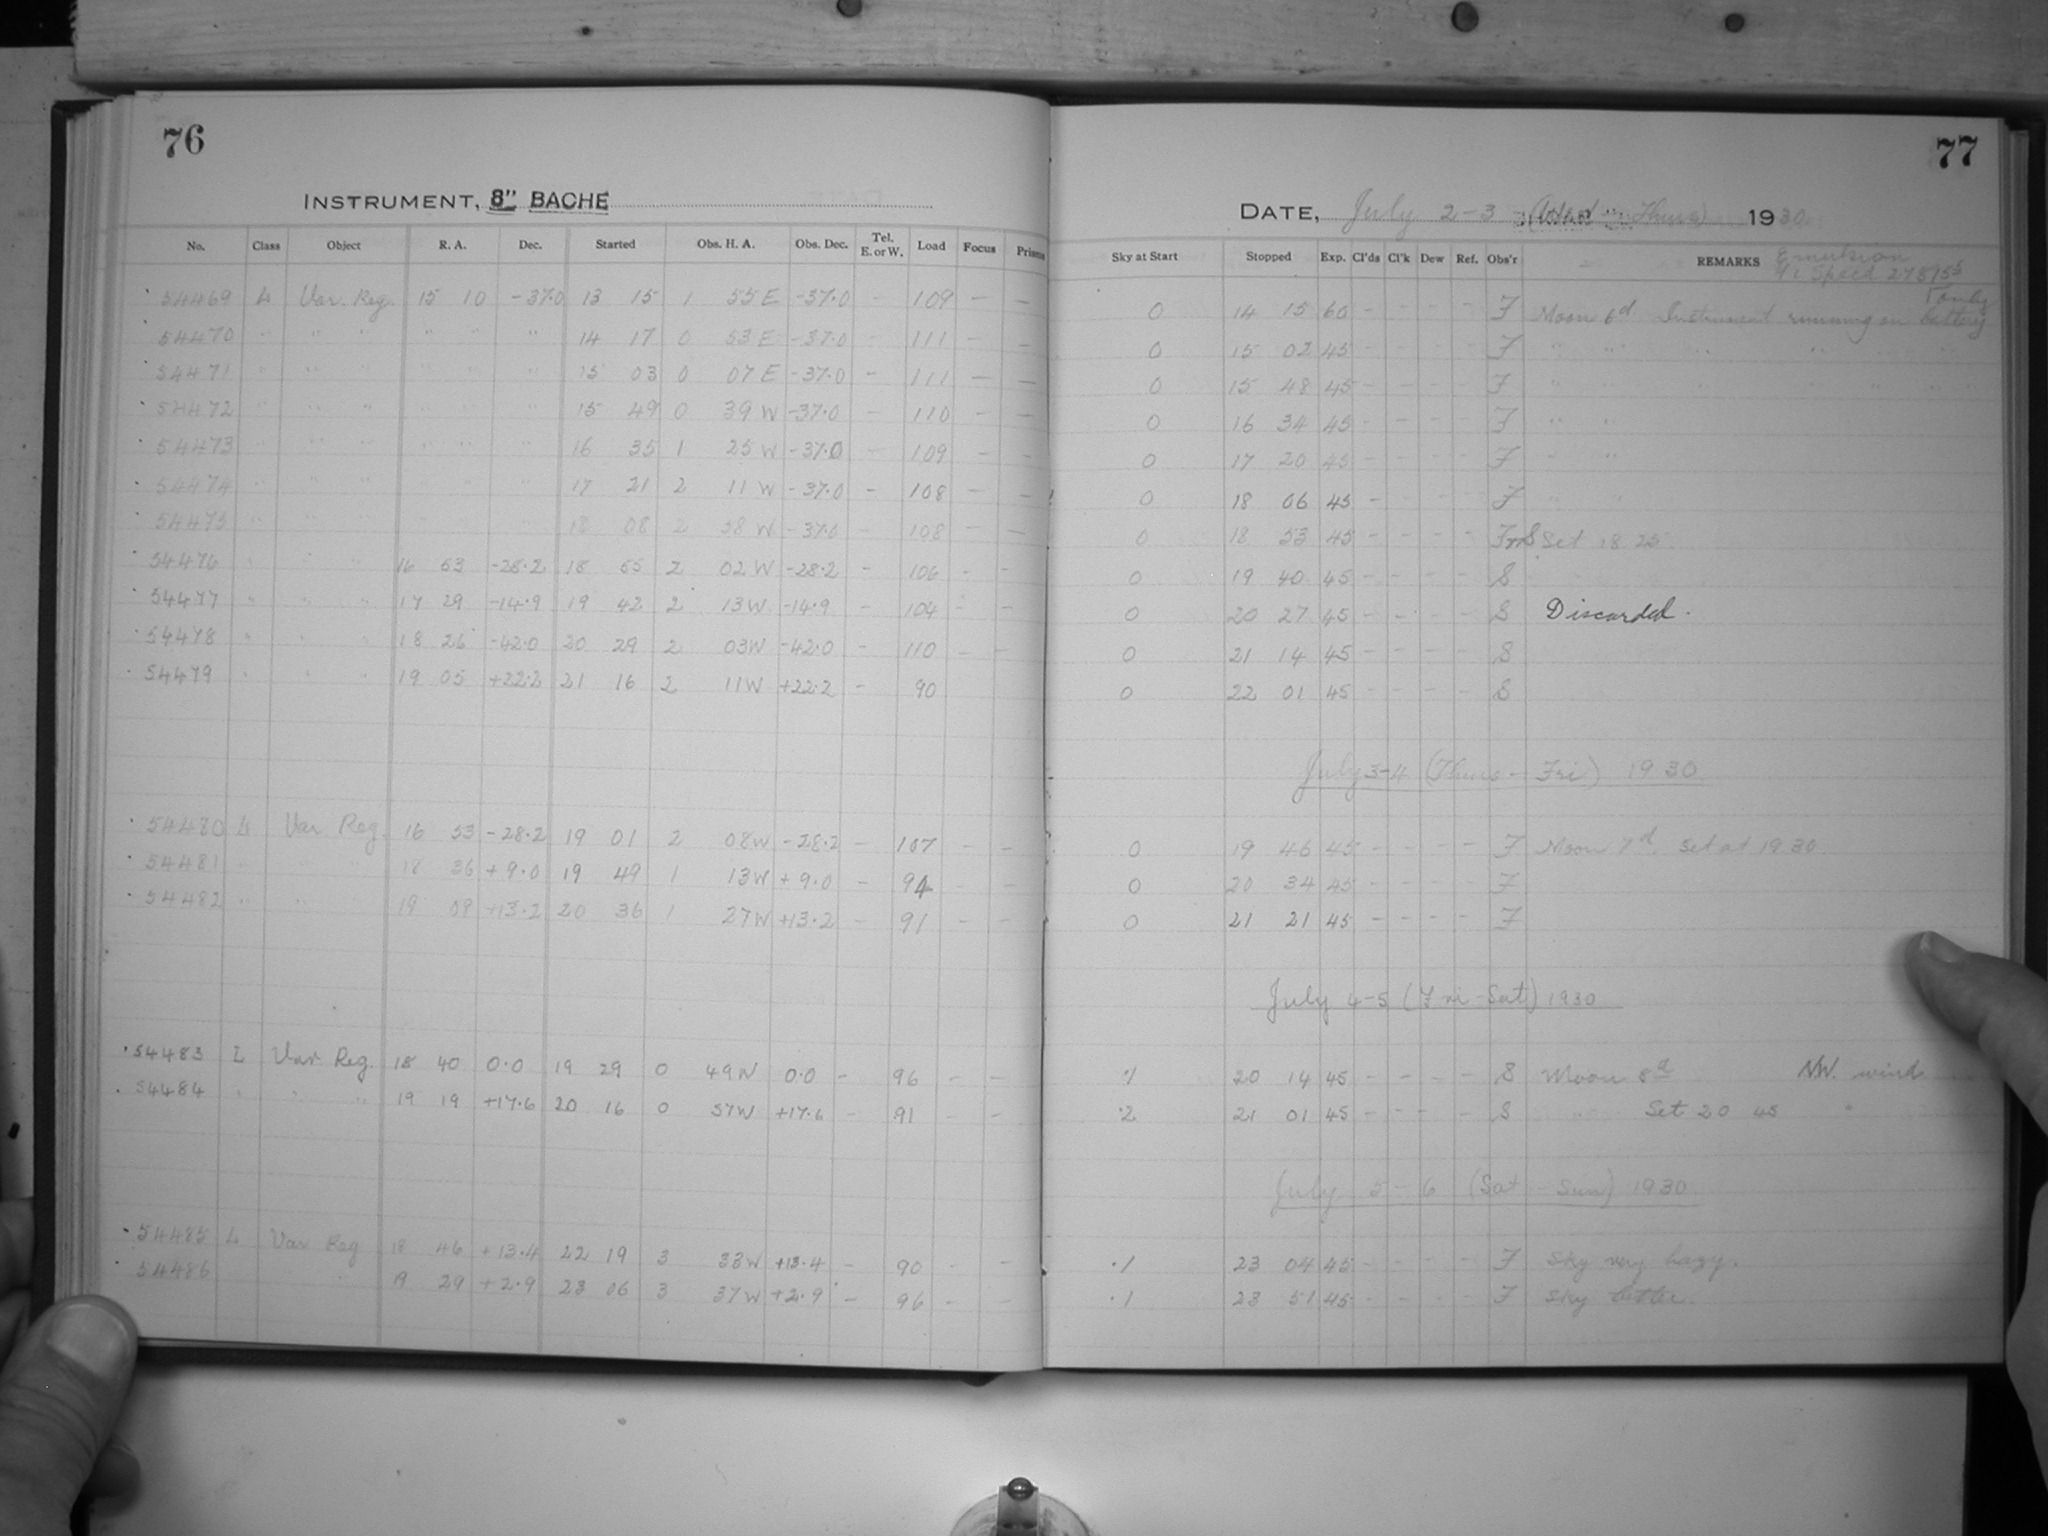 76
INSTRUMENT, 8" BACHE
No. Class Object R. A. Dec. Started Obs. H. A. Obs. Dec. Tel. E. or W. Load Focus Prisms
54469 L Var. Reg. 15 10 -37.0 13 15 1 55 E -37.0 - 109 - -
54470 " " " " " " 14 17 0 53 E -37.0 - 111 - -
54471 " " " " " " 15 03 0 07 E -37.0 - 111 - -
54472 " " " " " 15 49 0 39 W -37.0 - 110 - -
54473 " " " " " " 16 35 1 25 W -37.0 - 109 - -
54474 " " " " " " 17 21 2 11 W -37.0 - 108 - -
54475 " " " " " " 18 08 2 58 W -37.0 - 108 - -
54476 " " " 16 53 -28.2 18 55 2 02 W -28.2 - 106 - -
54477 " " " 17 29 -14.9 19 42 2 13 W -14.9 - 104 - -
54478 " " " 18 26 -42.0 20 29 2 03 W -42.0 - 110 - -
54479 " " " 19 05 +22.2 21 16 2 11 W +22.2 - 90
54480 L Var Reg. 16 53 -28.2 19 01 2 08 W -28.2 - 107 - -
54481 " " " 18 36 +9.0 19 49 1 13 W +9.0 - 94 - -
54482 " " " 19 09 +13.2 20 36 1 27 W +13.2 - 91 - -
54483 L Var Reg. 18 40 0.0 19 29 0 49 W 0.0 - 96 - -
54484 " " " 19 19 +17.6 20 16 0 57 W +17.6 - 91 - -
54485 L Var Reg 18 46 +13.4 22 19 3 33 W +13.4 - 90 - -
54486 19 29 +2.9 23 06 3 37 W +2.9 - 96 - -
77
DATE, July 2-3 (Wed - Thurs) 1930
Sky at Start Stopped Exp. Cl'ds Cl'k Dew Ref. Obs'r REMARKS Emulsion
Speed 27815
0 14 15 60 - - - - F Moon 6d. Instrument running on battery
0 15 02 45 - - - - F " " " "
0 15 48 45 - - - - F " " " " "
0 16 34 45 - - - - F " "
0 17 20 45 - - - - F " "
0 18 06 45 - - - - F " "
0 18 53 45 - - - - F S Set 18 25
0 19 40 45 - - - - S
0 20 27 45 - - - - S Discarded.
0 21 14 45 - - - - S
0 22 01 45 - - - - S
July 3-4 (Thurs - Fri) 1930
0 19 46 45 - - - - F Moon 7d. Set at 19.30
0 20 34 45 - - - - F
0 21 21 45 - - - - F
July 4-5 (Fri - Sat) 1930
.1 20 14 45 - - - - S Moon 8d NW. wind
.2 21 01 45 - - - - S " Set 20 45 "
July 5-6 (Sat - Sun) 1930
.1 23 04 45 - - - - F Sky very hazy.
.1 23 51 45 - - - - F Sky better.